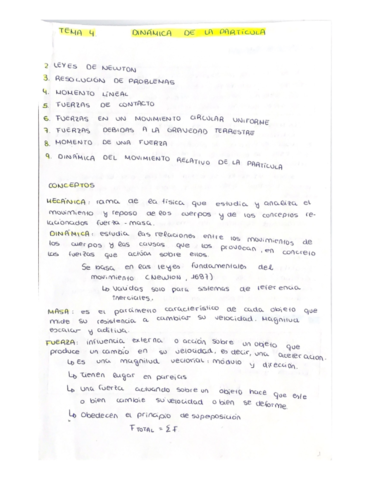 TEMA 4 DINÁMICA DE LA PARTÍCULA
2. LEYES DE NEWTON
3. RESOLUCIÓN DE PROBLEMAS
4. MOMENTO LINEAL
5. FUERZAS DE CONTACTO
6. FUERZAS EN UN MOVIMIENTO CIRCULAR UNIFORME
7. FUERZAS DEBIDAS A LA GRAVEDAD TERRESTRE
8. MOMENTO DE UNA FUERZA
9. DINÁMICA DEL MOVIMIENTO RELATIVO DE LA PARTÍCULA
CONCEPTOS
MECÁNICA: rama de la física que estudia y analiza el
movimiento y reposo de los cuerpos y de los conceptos re-
lacionados fuerza-masa.
DINÁMICA: estudia las relaciones entre los movimientos de
los cuerpos y las causas que los provocan, en concreto
las fuerzas que actúan sobre ellos.
Se basa en las leyes fundamentales del
movimiento (NEWTON, 1687)
↳ Válidas solo para sistemas de referencia
inerciales.
MASA: es el parámetro característico de cada objeto que
mide su resistencia a cambiar su velocidad. Magnitud
escalar y aditiva.
FUERZA: influencia externa o acción sobre un objeto que
produce un cambio en su velocidad, es decir, una aceleración.
↳ Es una magnitud vectorial: módulo y dirección.
↳ Tienen lugar en parejas
↳ Una fuerza actuando sobre un objeto hace que este
o bien cambie su velocidad o bien se deforme
↳ Obedecen el principio de superposición
F TOTAL = Σ F